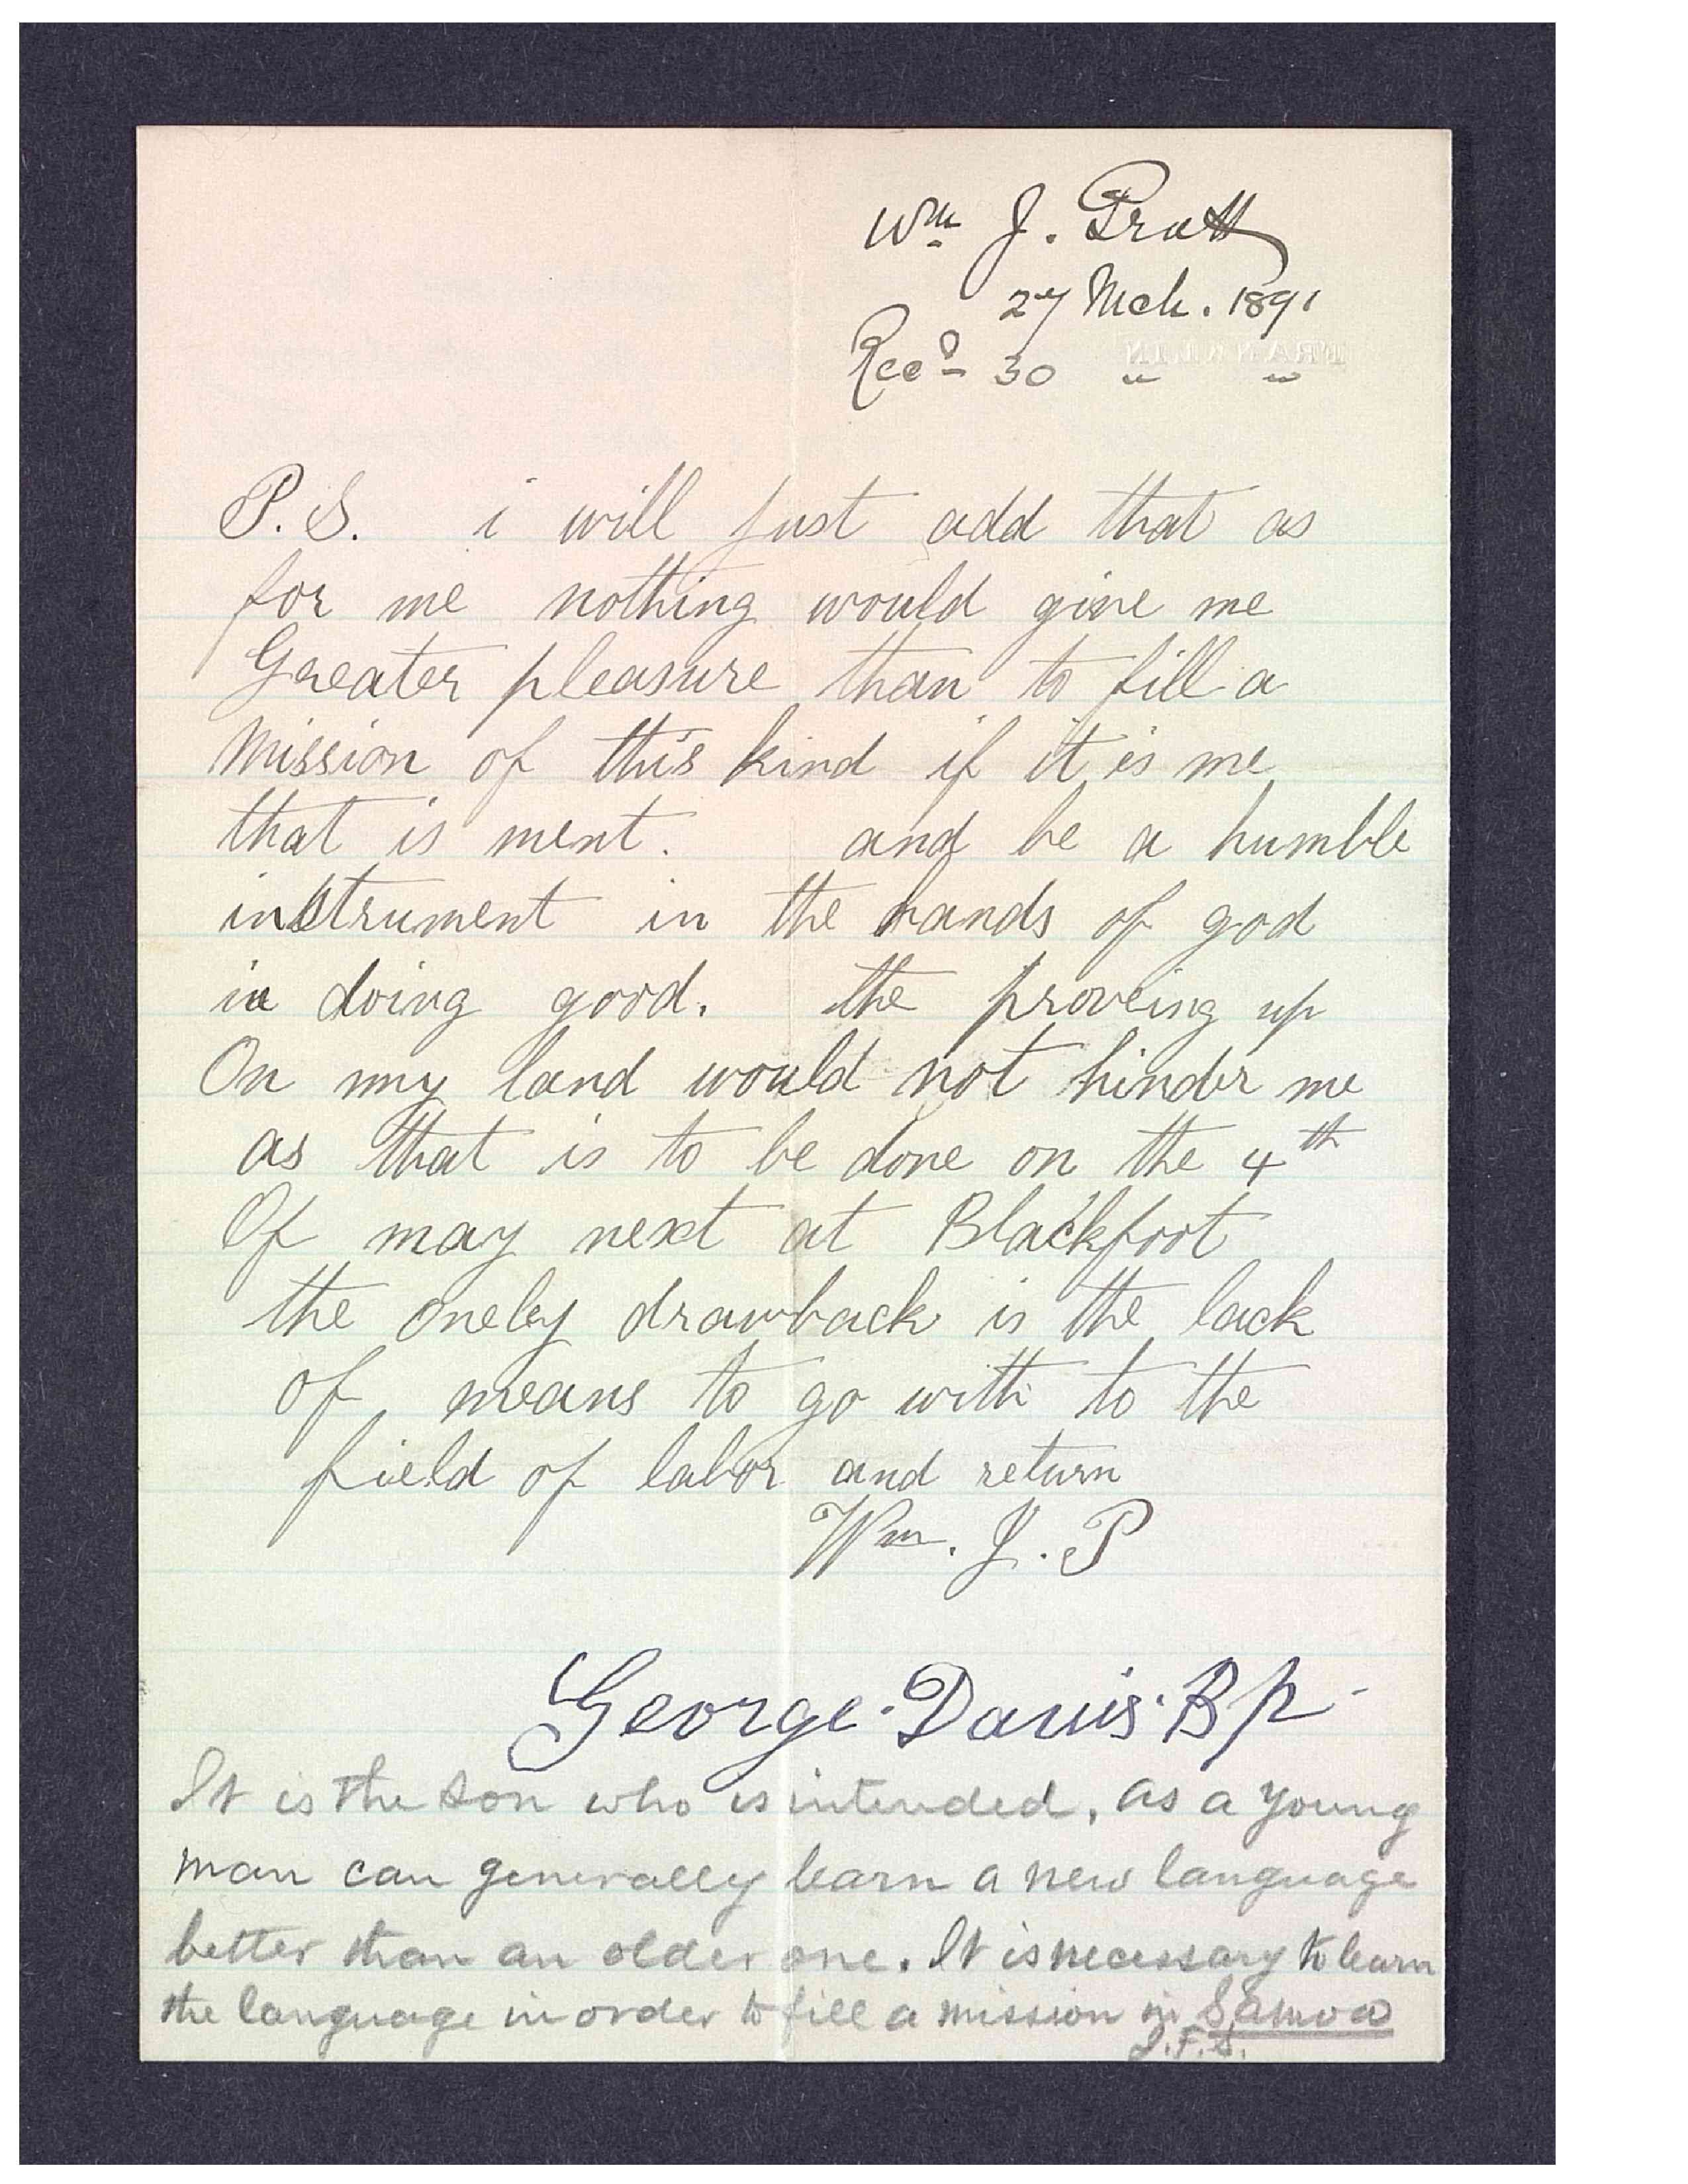 Wm J. Pratt
27 Mch. 1891
Recd 30 " "
FRANKLIN
P.S. i will just add that as
for me nothing would give me
Greater pleasure than to fill a
Mission of this kind if it is me
that is ment. and be a humble
instrument in the hands of god
in doing good. the proveing up
On my land would not hinder me
as that is to be done on the 4th
Of may next at Blackfoot
the onely drawback is the lack
of means to go with to the
field of labor and return
Wm. J. P
George Davis Bp
It is the son who is intended, as a young
man can generally learn a new language
better than an older one. It is necessary to learn
the language in order to fill a mission in Samoa
J.F.S.